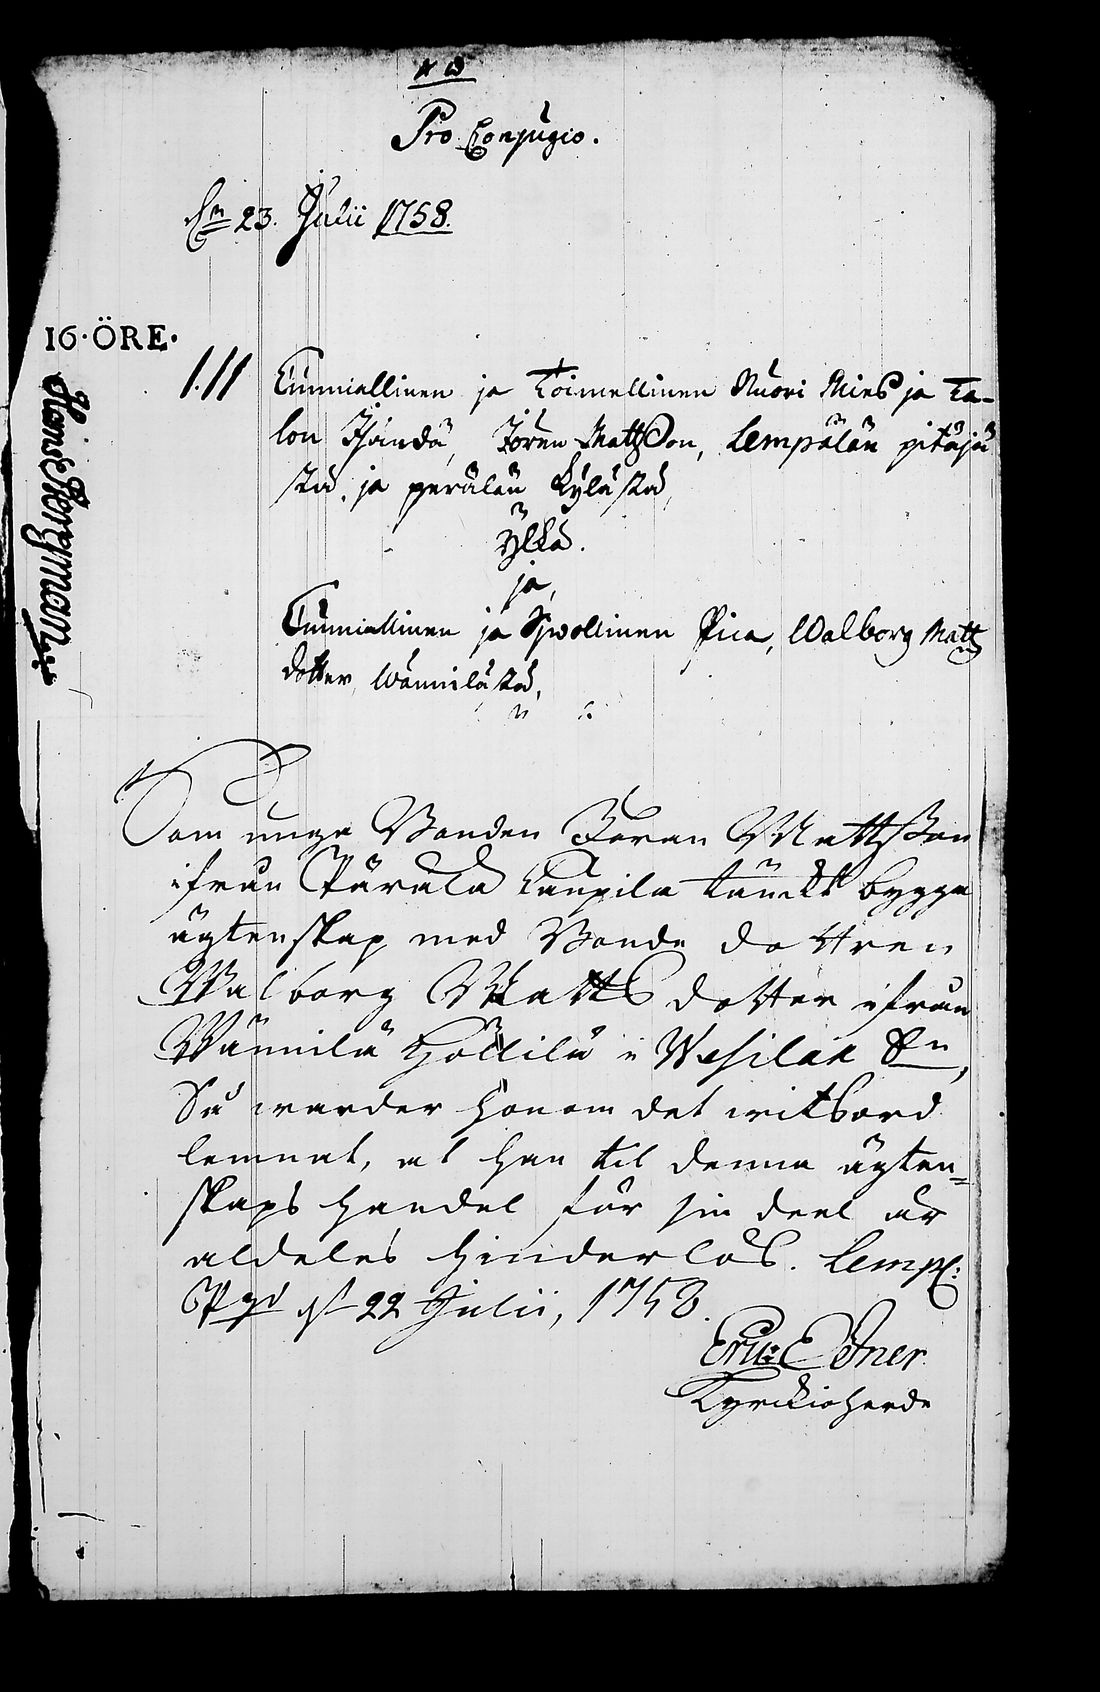 Pro Conjugio.
d. 23. Julii 1758.
16·ÖRE·
Hans Bergman
1.11 Cunniallinen ja Toimellinen Nuori Mies ja Ta-
lon Isändä, Jören MattsSon, Lempälän pitäjä
stä, ja perälän Kylästä,
ja,
Cunniallinen ja Sywellinen Pica, Walborg Matts
dotter, Wännilästä,
Som unge Bonden Jören MattsSon
ifrån Pärälä Kaupila tänckt bygga
ägtenskap med Bonde dottren
Walborg Matts dotter ifrån
Wännilä Hollilä i Wesilax Sn,
Så warder honom det witsord
lemnat, at han til denna ägten=
skaps handel för sin deel är
aldeles hinderlös. Lempl:
Pgd d 22 Julii, 1758.
Eric Edner
Kyrckioherde